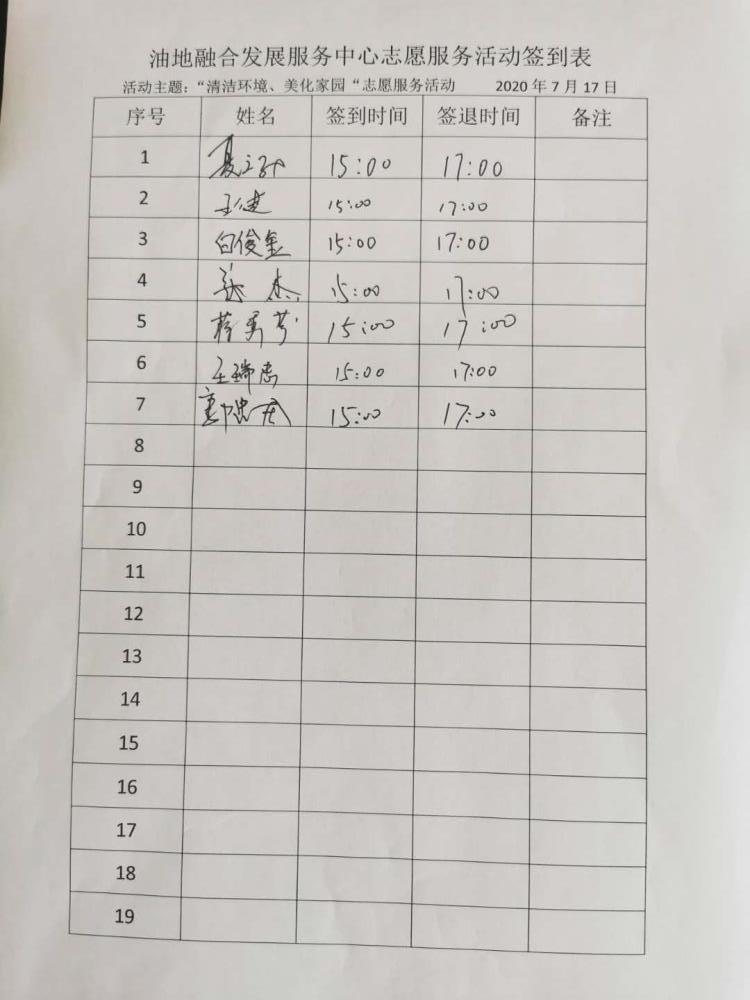 油地融合发展服务中心志愿服务活动签到表
活动主题：“清洁环境、美化家园“志愿服务活动 2020年7月17日
序号 姓名 签到时间 签退时间 备注
1 15:00 17:00
2 王建 15:00 17:00
3 白俊奎 15:00 17:00
4 张杰 15:00 17:00
5 15:00 17:00
6 王瑞忠 15:00 17:00
7 15:00 17:00
8
9
10
11
12
13
14
15
16
17
18
19